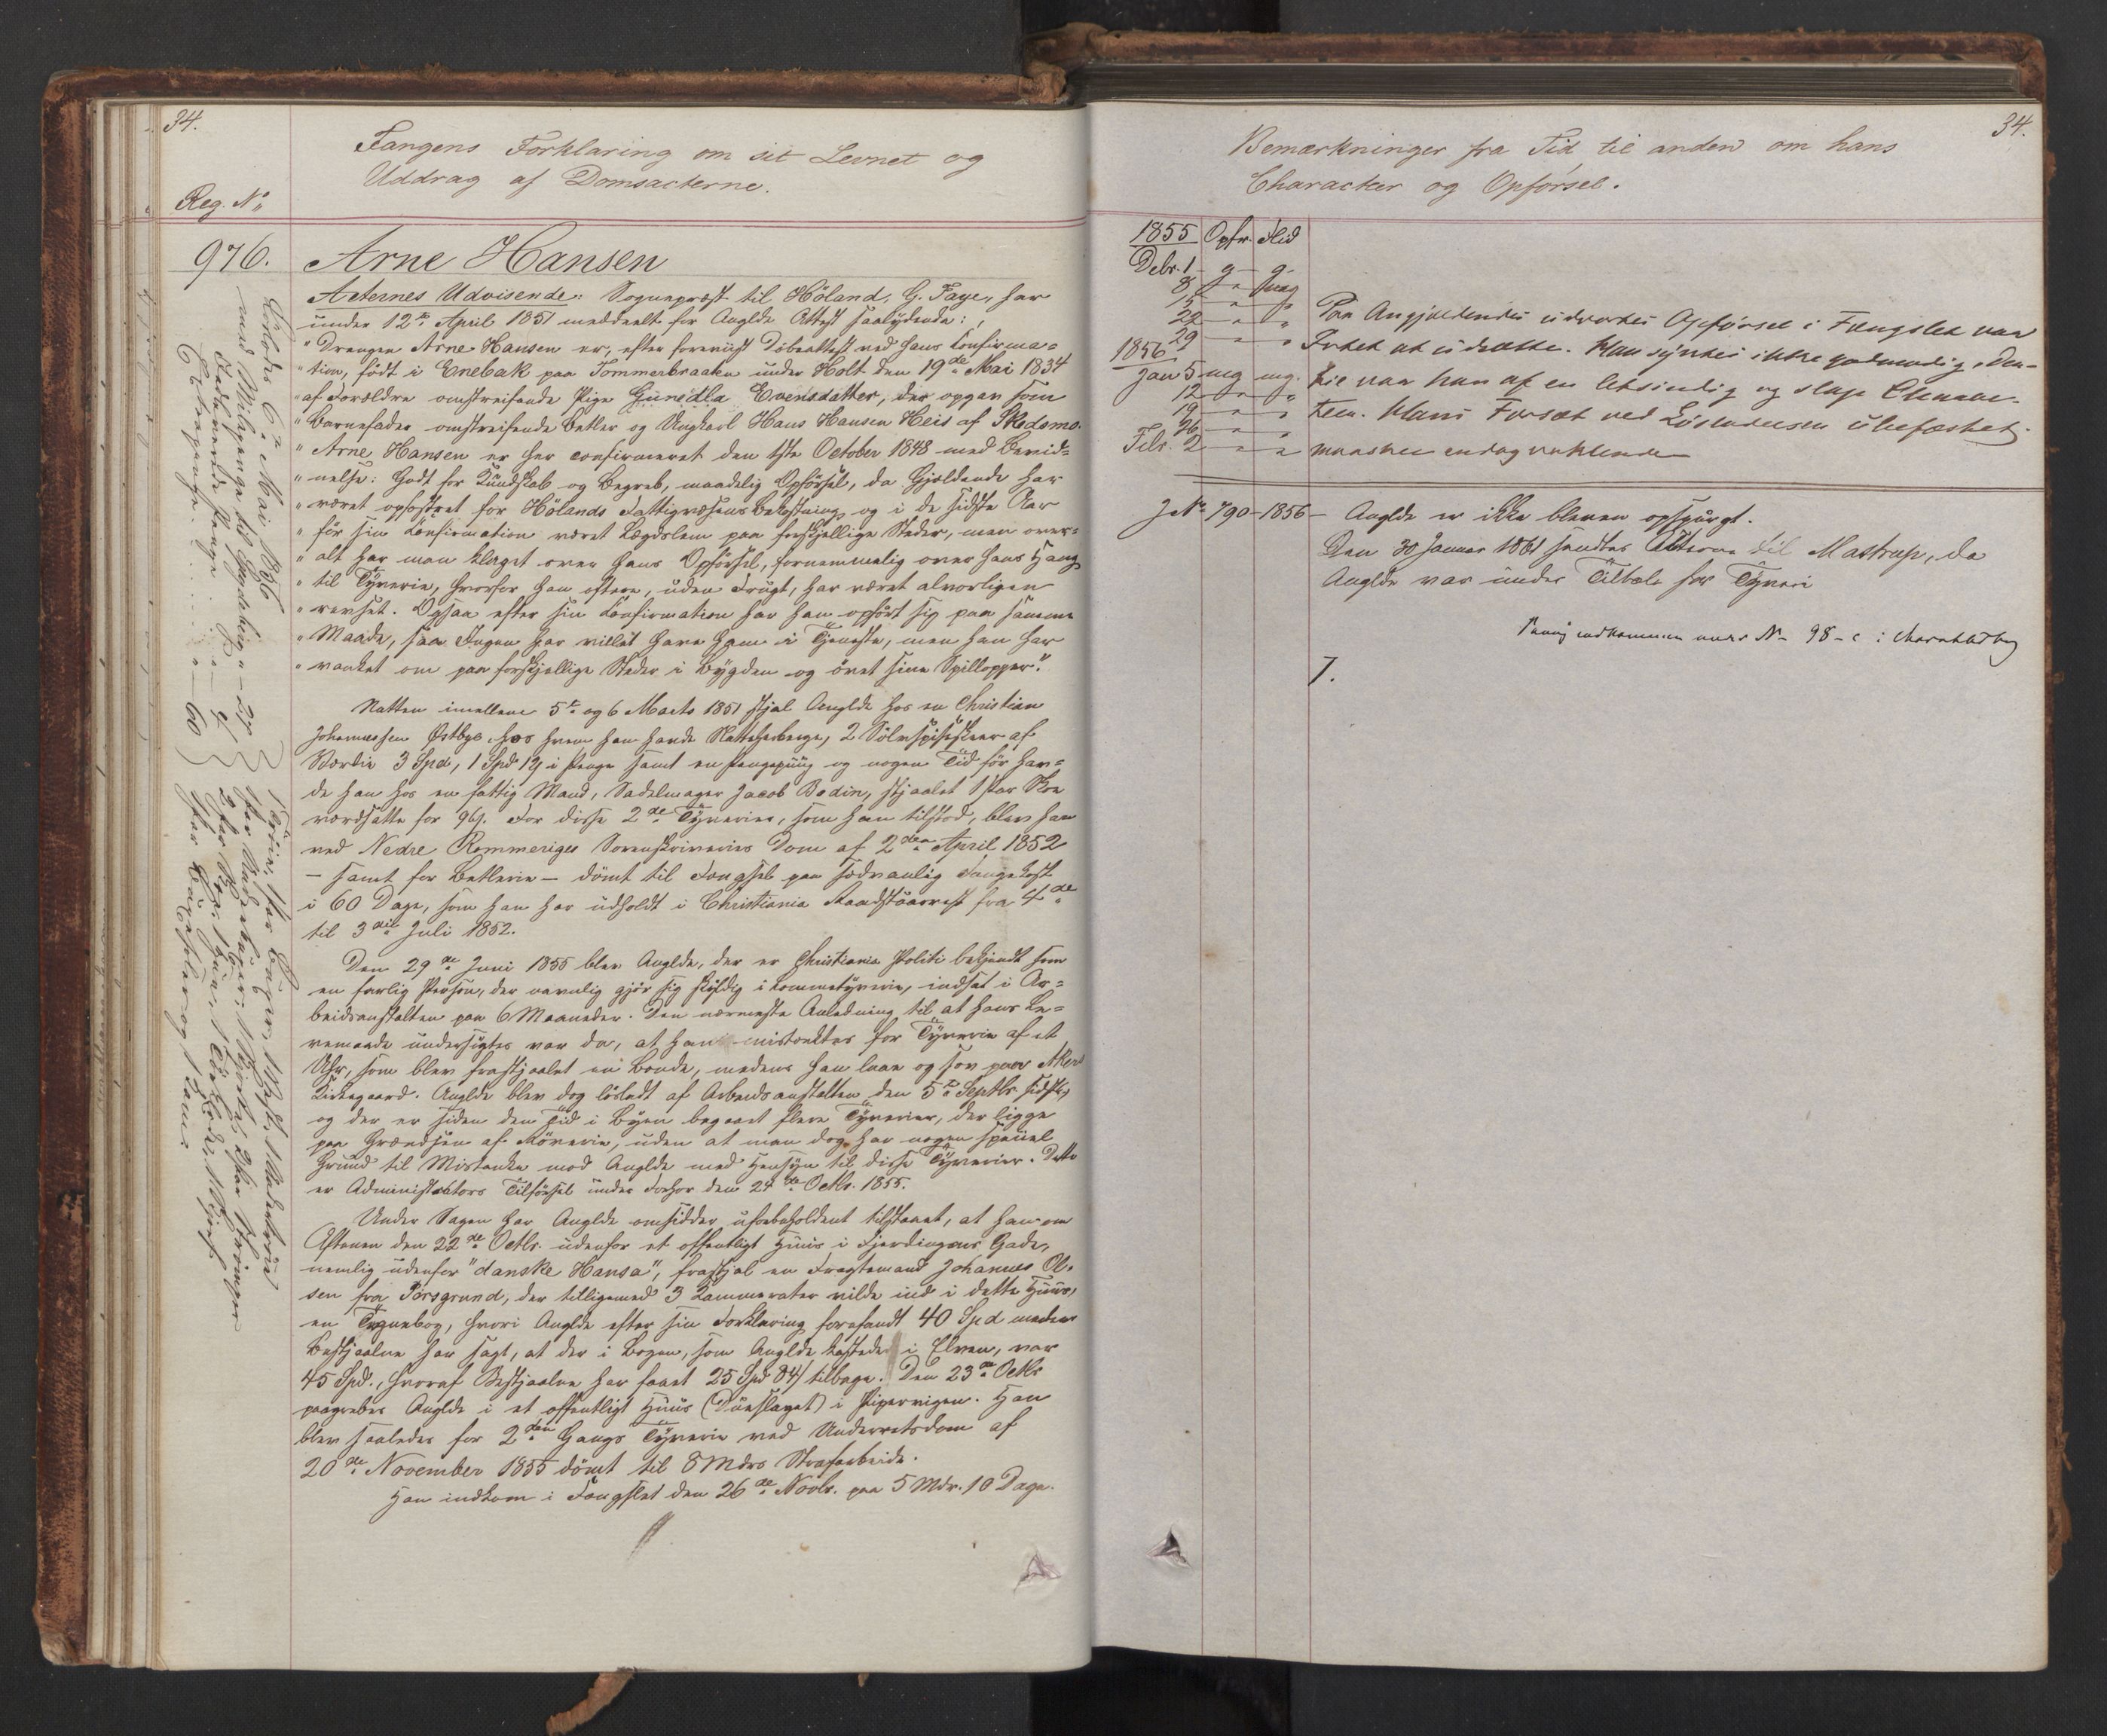 34.
Fangens Forklaring om sit Levnet og
Uddrag af Domsacterne.
Reg. No
976. Arne Hansen
Acternes Udvisende: Sognepræst til Höland, G. Faye, har
under 12te April 1851 meddeelt for Anglde Attest saalydende:
"Drengen Arne Hansen er, efter foreviist Döbeattest ved hans Confirma=
"tion, født i Enebak paa Tommerbraaten under Holt den 19de Mai 1834
"af Forældre omstreifende Pige Gunedla Evensdatter, der opgav som
"Barnefader omstreifende Betler og Ungkarl Hans Hansen Heis af Skedsmo.
"Arne Hansen er her confirmeret den 1ste October 1848 med Bevid=
"nelse: Godt for Kundskab og Begreb, maadelig Opförsel, da Gjeldende har
"været opfostret for Hölands Fattigvæsens Bekostning og i de sidste Aar
"för sin Confirmation været Lægdslem paa forskjellige Steder, men over=
"alt har man klaget over hans Opförsel, fornemmelig over hans Hang
"til Tyverie, hvorfor han oftere, uden Frugt, har været alvorligen
"revset. Ogsaa efter sin Confirmation har han opfört sig paa samme
"Maade, saa Ingen har villet have ham i Tjeneste, men han har
"vanket om paa forskjellige Steder i Bygden og övet sine Spillopper."
Natten imellem 5te og 6 Marts 1851 stjal Anglde hos en Christian
Johannesen Østbye, hos hvem han havde Natteherberge, 2 Sölvspiseskeer af
Værdie 3 Spd, 1 Spd 12 s i Penge samt en Pengepung og nogen Tid för hav=
de han hos en fattig Mand, Sadelmager Jacob Bodin, stjaalet 1 Par Skoe
værdsatte for 96 s. For disse 2de Tyverier, som han tilstod, blev han
ved Nedre Rommeriges Sorenskriveries Dom af 2den April 1852
– samt for Betlerie – dömt til Fængsel paa sædvanlig Fangekost
i 60 Dage, som han har udholdt i Christiania Raadstuarrest fra 4de
til 3die Juli 1852.
Den 29de Juni 1855 blev Anglde, der er Christiania Politi bekjendt som
en farlig Person, der navnlig gjör sig skyldig i Lommetyverie, indsat i Ar=
beidsanstalten paa 6 Maaneder. Den nærmeste Anledning til at hans Le=
vemaade undersögtes var da, at han mistænktes for Tyverie af et
Uhr, som blev frastjaalet en Bonde, medens han laae og sov paa Akers
Kirkegaard. Anglde blev dog lösladt af Arbeidsanstalten den 5te Septbr. sidstl.,
og der er siden den Tid i Byen begaaet flere Tyverier, der ligge
paa Grændsen af Röverie, uden at man dog har nogen speciel
Grund til Mistanke mod Anglde med Hensyn til disse Tyverier. Dette
er Administrators Tilförsel under Forhör den 24de Octbr. 1855.
Under Sagen har Anglde omsider uforbeholdent tilstaaet, at han om
Aftenen den 22de Octbr. udenfor et offentligt Huus i Fjerdingens Gade,
nemlig udenfor "danske Hansa", frastjal en Fragtemand Johannes Ol=
sen fra Porsgrund, der tilligemed 3 Kammerater vilde ind i dette Huus,
en Tegnebog, hvori Anglde efter sin Forklaring forefandt 40 Spd medens
Bestjaalne har sagt, at der i Bogen, som Anglde kastede i Elven, var
45 Spd., hvoraf Bestjaalne har faaet 25 Spd 84 s tilbage. Den 23de Octbr
paagrebes Anglde i et offentligt Huus (Dueslaget) i Pipervigen. Han
blev saaledes for 2den Gangs Tyverie ved Underretsdom af
20de November 1855 dömt til 8 Mdrs Strafarbeide.
Han indkom i Fængslet den 26de Novbr. paa 5 Mdr. 10 Dage.
Lösladt 6te Mai 1856
med Bipenge
Indværende Penge
34.
Bemærkninger fra Tid til anden om hans
Character og Opförsel.
1855 Opfr. Flid
Debr. 1 – g – g –
8 – " – mg
15 – " – "
22 – " – "
29 – " – "
1856
Jan 5 mg mg.
12 – " – "
19 – " – "
26 – " – "
Febr. 2 – " – "
Paa Angjeldendes udvortes Opførsel i Fængslet var
Intet at udsætte. Han syntes ikke godmodig, Den-
hos var han af en letsindig og slap Charac-
teer. Hans Forsæt ved Løsladelsen ubefæstet
maaskee endog vaklende
J. No 790 – 1856 – Anglde er ikke bleven opspurgt.
Den 30 Januar 1861 sendtes Acterne til Mastrup, da
Anglde var under Tiltale for Tyveri
Paany indkommen under No 98 – c i
7.